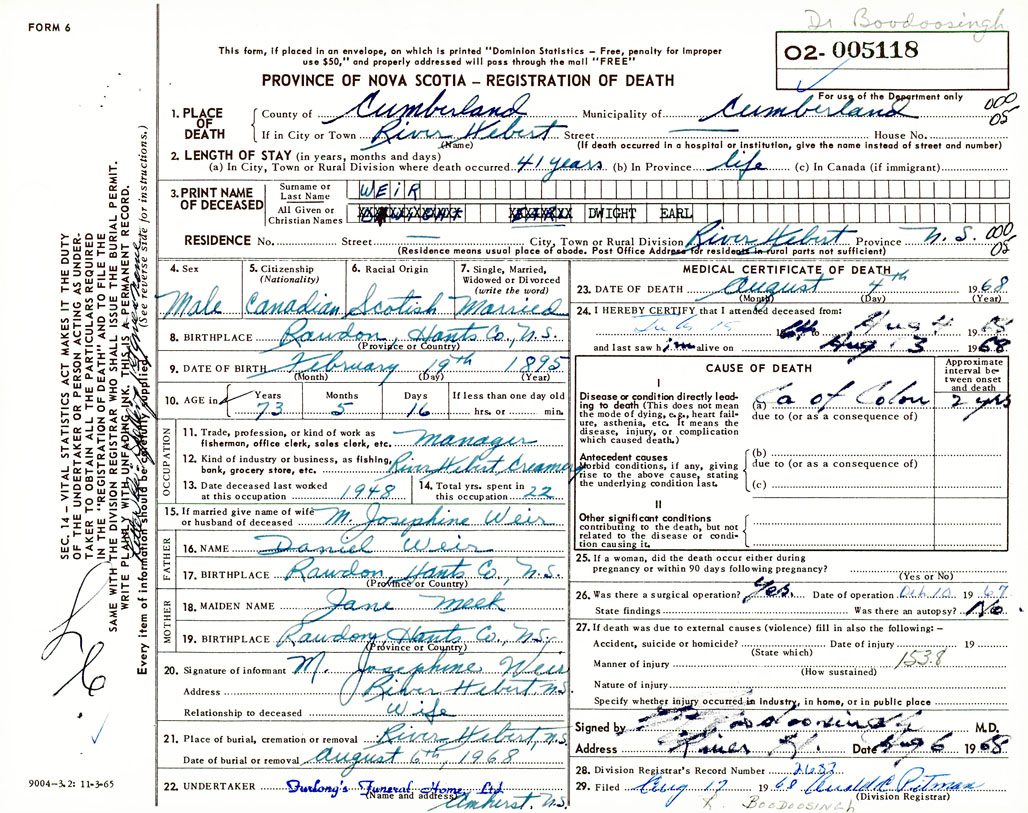 Dr. Boodoosingh
FORM 6
This form, if placed in an envelope, on which is printed "Dominion Statistics – Free, penalty for improper
use $50," and properly addressed will pass through the mail "FREE"
O2- 005118
PROVINCE OF NOVA SCOTIA – REGISTRATION OF DEATH
For use of the Department only
1. PLACE OF DEATH County of Cumberland Municipality of Cumberland 000 05
If in City or Town River Hebert Street House No.
(Name) (If death occurred in a hospital or institution, give the name instead of street and number)
2. LENGTH OF STAY (in years, months and days)
(a) In City, Town or Rural Division where death occurred 41 years (b) In Province life (c) In Canada (if immigrant)
3. PRINT NAME OF DECEASED Surname or Last Name WEIR
All Given or Christian Names DWIGHT EARL
RESIDENCE No. Street City, Town or Rural Division River Hebert Province N.S. 000 05
(Residence means usual place of abode. Post Office Address for residents in rural parts not sufficient)
4. Sex Male
5. Citizenship (Nationality) Canadian
6. Racial Origin Scotish
7. Single, Married, Widowed or Divorced (write the word) Married
8. BIRTHPLACE Rawdon, Hants Co., N.S.
(Province or Country)
9. DATE OF BIRTH February 19th 1895
(Month) (Day) (Year)
10. AGE in Years 73 Months 5 Days 16 If less than one day old hrs. or min.
OCCUPATION
11. Trade, profession, or kind of work as fisherman, office clerk, sales clerk, etc. Manager
12. Kind of industry or business, as fishing, bank, grocery store, etc. River Hebert Creamery
13. Date deceased last worked at this occupation 1948
14. Total yrs. spent in this occupation 22
15. If married give name of wife or husband of deceased M. Josephine Weir
FATHER
16. NAME Daniel Weir
17. BIRTHPLACE Rawdon, Hants Co, N.S.
(Province or Country)
MOTHER
18. MAIDEN NAME Jane Meek
19. BIRTHPLACE Rawdon, Hants Co., N.S.
(Province or Country)
20. Signature of informant M. Josephine Weir
Address River Hebert N.S.
Relationship to deceased Wife
21. Place of burial, cremation or removal River Hebert, N.S.
Date of burial or removal August 6th, 1968
22. UNDERTAKER Furlong's Funeral Home, Ltd
(Name and address) Amherst, N.S.
MEDICAL CERTIFICATE OF DEATH
23. DATE OF DEATH August 4th 1968
(Month) (Day) (Year)
24. I HEREBY CERTIFY that I attended deceased from:
July 15 19 Aug 4 1968
and last saw him alive on Aug 3 1968
CAUSE OF DEATH
Approximate interval between onset and death
I
Disease or condition directly leading to death (This does not mean the mode of dying, e.g., heart failure, asthenia, etc. It means the disease, injury, or complication which caused death.)
(a) Ca of Colon 2 yrs
due to (or as a consequence of)
Antecedent causes
Morbid conditions, if any, giving rise to the above cause, stating the underlying condition last.
(b)
due to (or as a consequence of)
(c)
II
Other significant conditions
contributing to the death, but not related to the disease or condition causing it.
25. If a woman, did the death occur either during
pregnancy or within 90 days following pregnancy?
(Yes or No)
26. Was there a surgical operation? Yes. Date of operation 10 1967
State findings Was there an autopsy? No
27. If death was due to external causes (violence) fill in also the following: –
Accident, suicide or homicide? Date of injury 19
(State which)
Manner of injury 153.8
(How sustained)
Nature of injury
Specify whether injury occurred in Industry, in home, or in public place
Signed by Boodoosingh M.D.
Address River H. Date Aug 6 1968
28. Division Registrar's Record Number
29. Filed Aug 17 1968 Pitman
(Division Registrar)
BOODOOSINGH
SEC. 14 – VITAL STATISTICS ACT MAKES IT THE DUTY
OF THE UNDERTAKER OR PERSON ACTING AS UNDER-
TAKER TO OBTAIN ALL THE PARTICULARS REQUIRED
IN THE "REGISTRATION OF DEATH" AND TO FILE THE
SAME WITH THE DIVISION REGISTRAR WHO SHALL ISSUE THE BURIAL PERMIT.
WRITE PLAINLY WITH UNFADING INK. THIS IS A PERMANENT RECORD.
Every item of information should be carefully supplied. (See reverse side for instructions.)
9004-3.2: 11-3-65